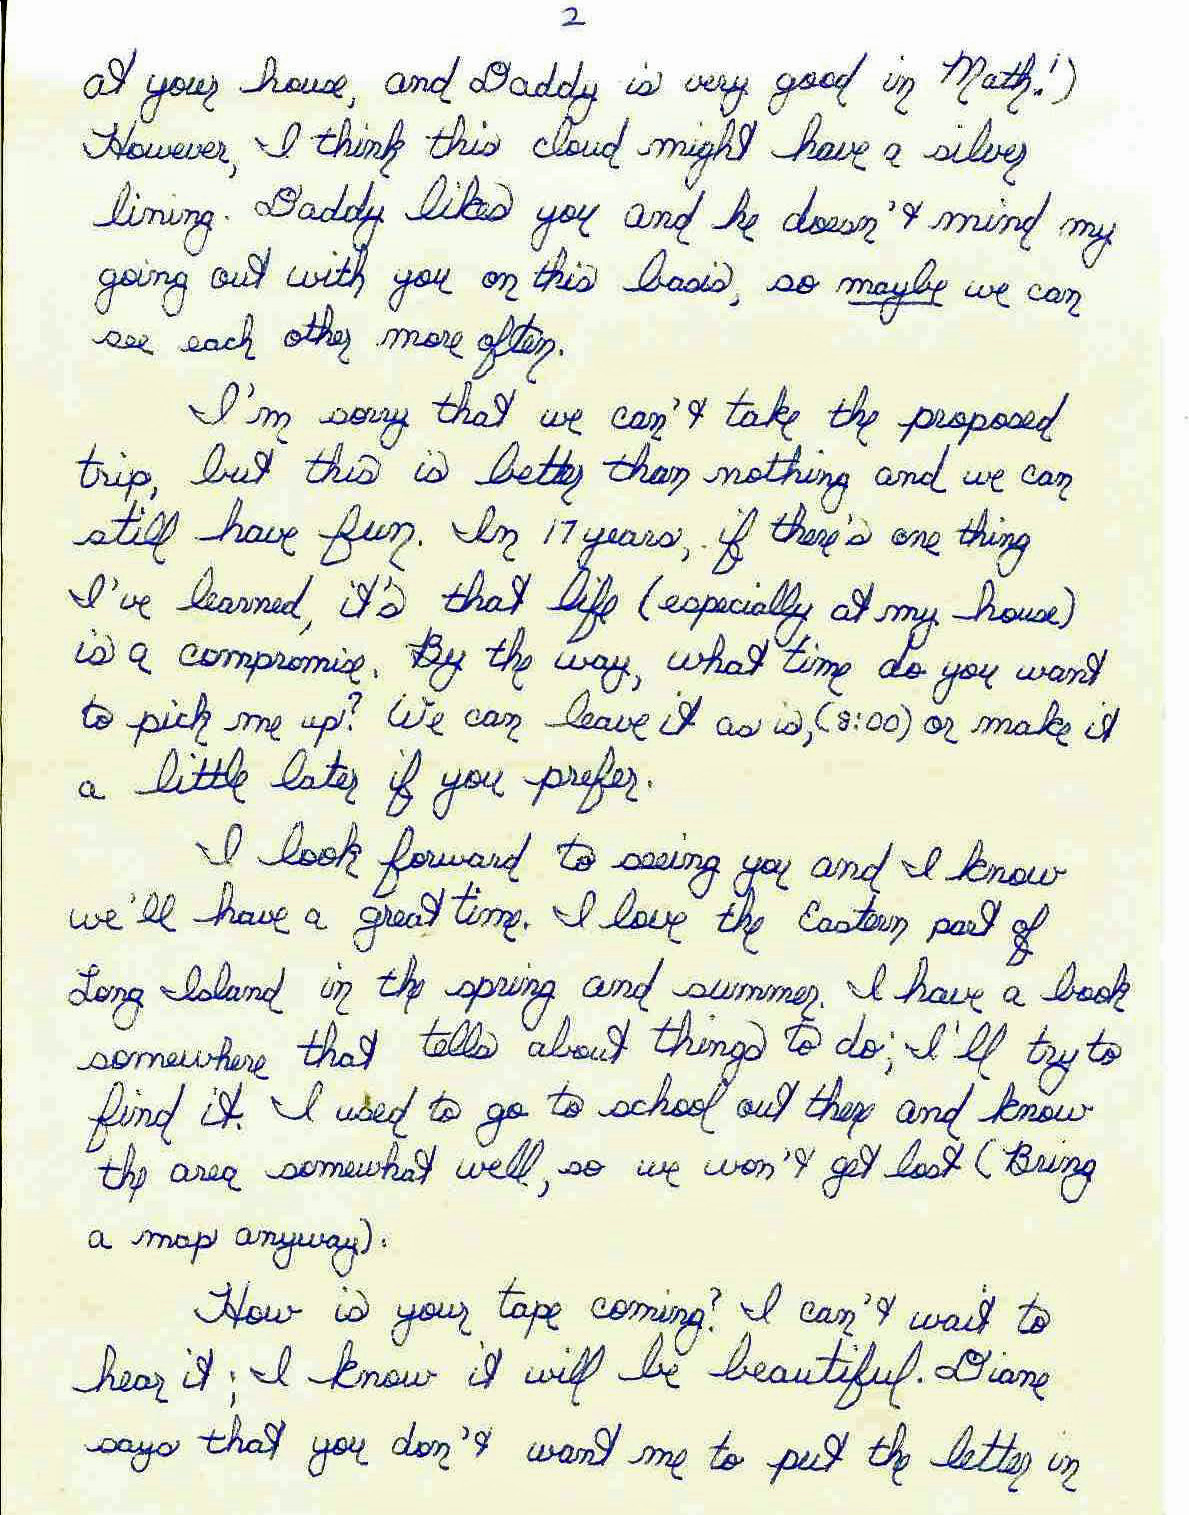 2
at your house, and Daddy is very good in Math!)
However, I think this cloud might have a silver
lining. Daddy likes you and he doesn't mind my
going out with you on this basis, so maybe we can
see each other more often.
I'm sorry that we can't take the proposed
trip, but this is better than nothing and we can
still have fun. In 17 years, if there's one thing
I've learned, it's that life (especially at my house)
is a compromise. By the way, what time do you want
to pick me up? We can leave it as is, (8:00) or make it
a little later if you prefer.
I look forward to seeing you and I know
we'll have a great time. I love the Eastern part of
Long Island in the spring and summer. I have a book
somewhere that tells about things to do; I'll try to
find it. I used to go to school out there and know
the area somewhat well, so we won't get lost (Bring
a map anyway).
How is your tape coming? I can't wait to
hear it; I know it will be beautiful. Diane
says that you don't want me to put the letter in